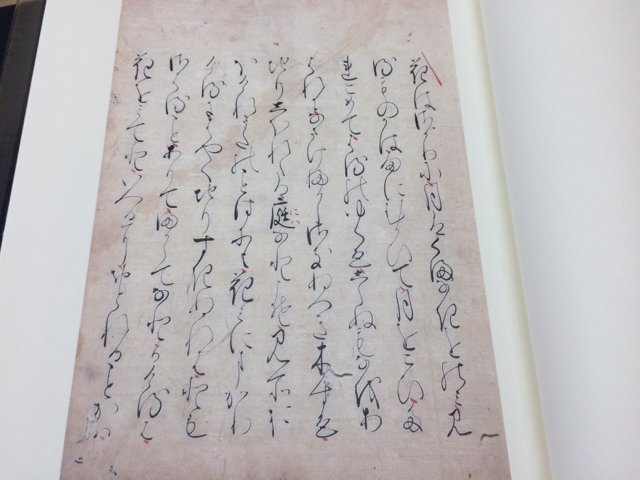 花はさかりに月はくまなきをのみ見
るものかは雨にむかひて月をこひた
れこめて春のゆくゑしらぬも猶あ
はれになさけふかしさきぬへきほとの木すゑ
ちりしほれたる庭なとこそ見所お
ほけれうたのことはかきにも花見にまかれり
けるにはやくちりすきにけれはとも
さはることありてまからてなともかけるは
花を見てといへるにをとれることかは